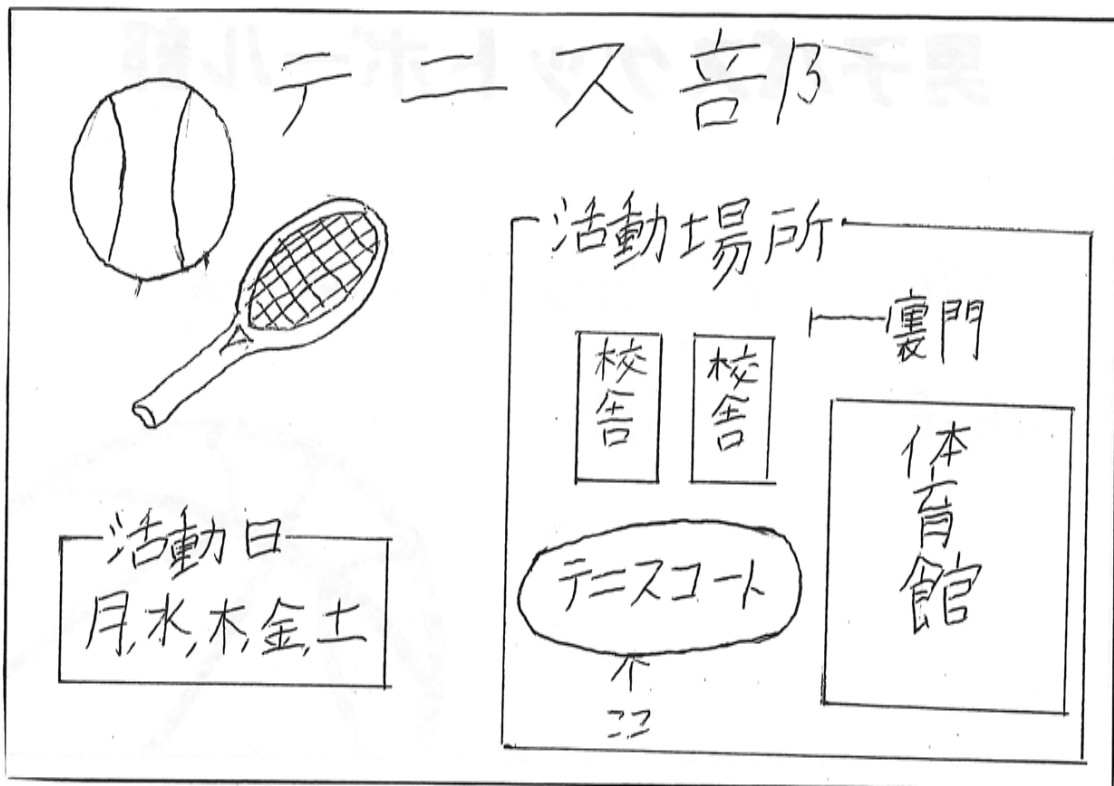 テニス部
活動場所
裏門
校舎
校舎
体育館
テニスコート
↑
ココ
活動日
月,水,木,金,土